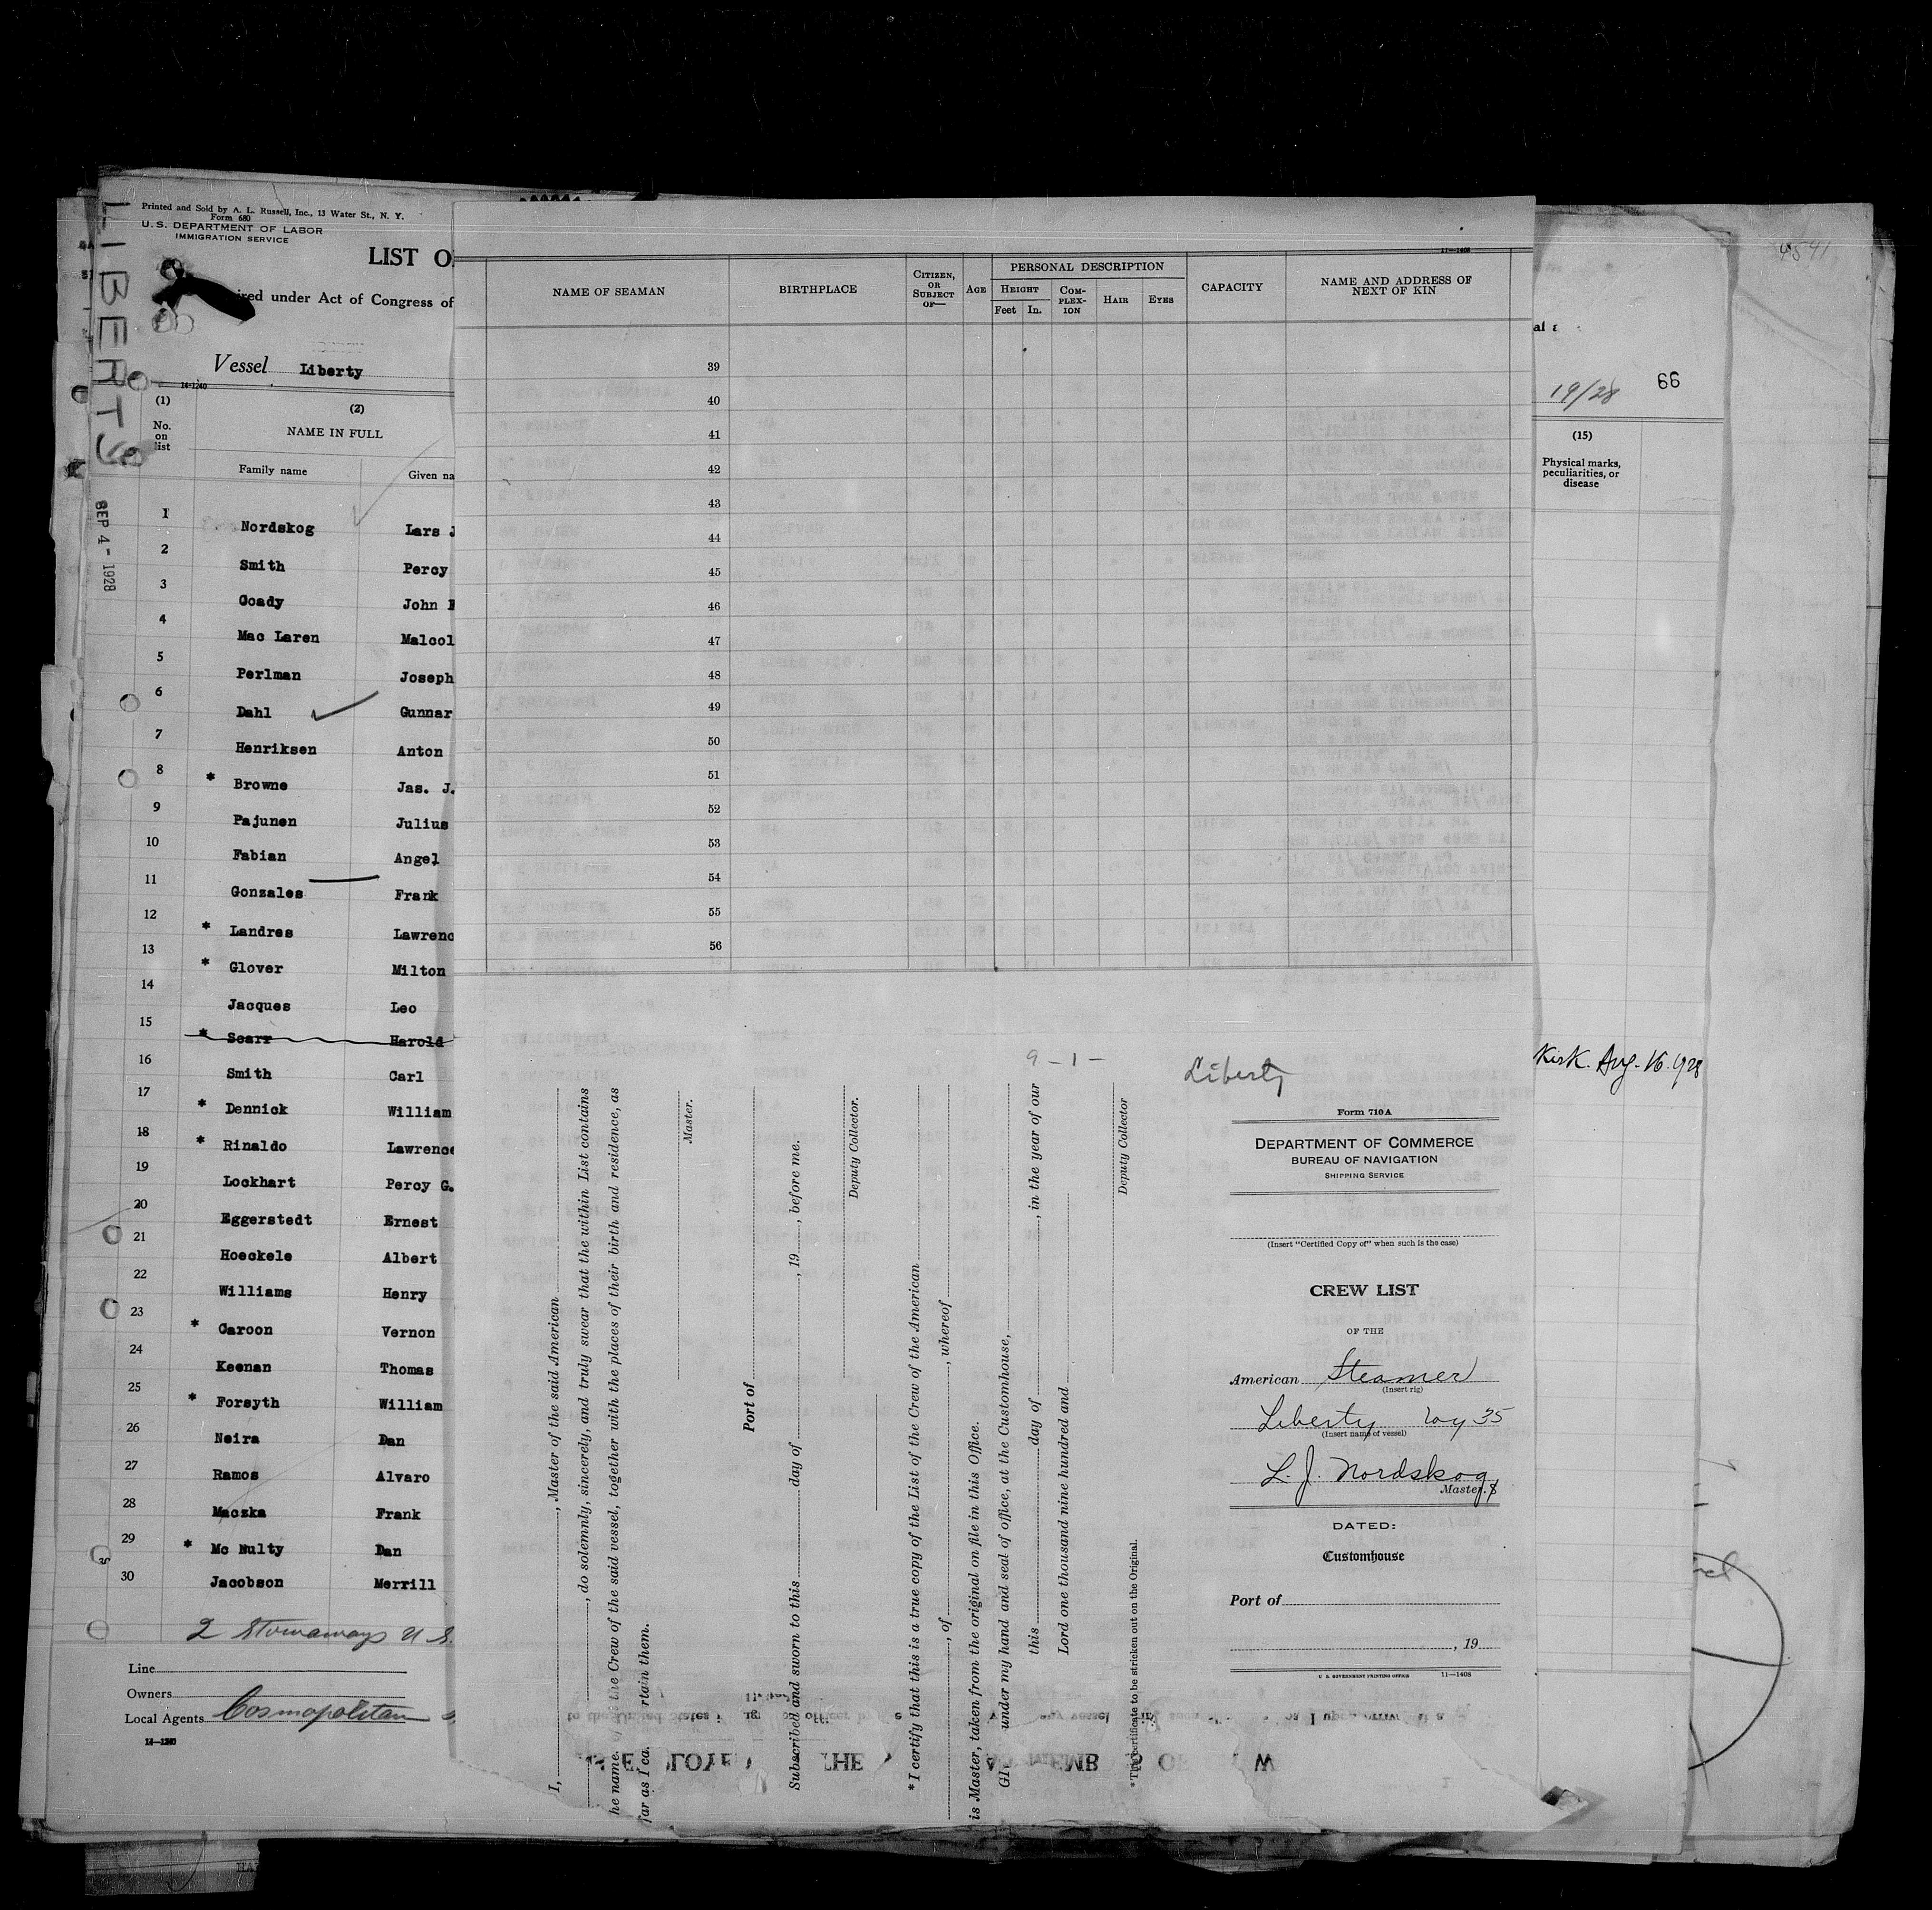 LIBERTY
SEP 4 - 1928
Printed and Sold by A. L. Russell, Inc., 13 Water St., N. Y.
Form 680
U. S. DEPARTMENT OF LABOR
IMMIGRATION SERVICE
LIST O
ired under Act of Congress of
Vessel Liberty
14-1240
(1) (2)
No. on list
NAME IN FULL
Family name Given na
1 Nordskog Lars J
2 Smith Percy
3 Coady John
4 Mac Laren Malcol
5 Perlman Joseph
6 Dahl Gunnar
7 Henriksen Anton
8 * Browne Jas. J.
9 Pajunen Julius
10 Fabian Angel
11 Gonzales Frank
12 * Landres Lawrenc
13 * Glover Milton
14 Jacques Leo
15 * Scarr Harold
16 Smith Carl
17 * Dennick William
18 * Rinaldo Lawrence
19 Lockhart Percy G.
20 Eggerstedt Ernest
21 Hoeckele Albert
22 Williams Henry
23 * Caroon Vernon
24 Keenan Thomas
25 * Forsyth William
26 Neira Dan
27 Ramos Alvaro
28 Maczka Frank
29 * Mc Nulty Dan
30 Jacobson Merrill
2 Stowaways U S.
Line
Owners
Local Agents Cosmopolitan
14-1240
11-1408
NAME OF SEAMAN
BIRTHPLACE
CITIZEN, OR SUBJECT OF—
AGE
PERSONAL DESCRIPTION
HEIGHT
Feet In.
COM-PLEX-ION
HAIR
EYES
CAPACITY
NAME AND ADDRESS OF NEXT OF KIN
39
40
41
42
43
44
45
46
47
48
49
50
51
52
53
54
55
56
I, , Master of the said American
, do solemnly, sincerely, and truly swear that the within List contains
he name of the Crew of the said vessel, together with the places of their birth and residence, as
far as I ca rtain them.
Master.
Port of
Subscribed and sworn to this day of , 19 , before me.
Deputy Collector.
* I certify that this is a true copy of the List of the Crew of the American
, of , whereof
is Master, taken from the original on file in this Office.
GI under my hand and seal of office, at the Customhouse,
this day of , in the year of our
Lord one thousand nine hundred and
Deputy Collector
* This certificate to be stricken out on the Original.
9 - 1 -
Liberty
Form 710A
DEPARTMENT OF COMMERCE
BUREAU OF NAVIGATION
SHIPPING SERVICE
(Insert "Certified Copy of" when such is the case)
CREW LIST
OF THE
American Steamer
(Insert rig)
Liberty Voy 35
(Insert name of vessel)
L. J. Nordskog
Master.
DATED:
Customhouse
Port of
, 19
U. S. GOVERNMENT PRINTING OFFICE 11—1408
4541
al
19/28 66
(15)
Physical marks, peculiarities, or disease
Kirk. Aug. 16. 928